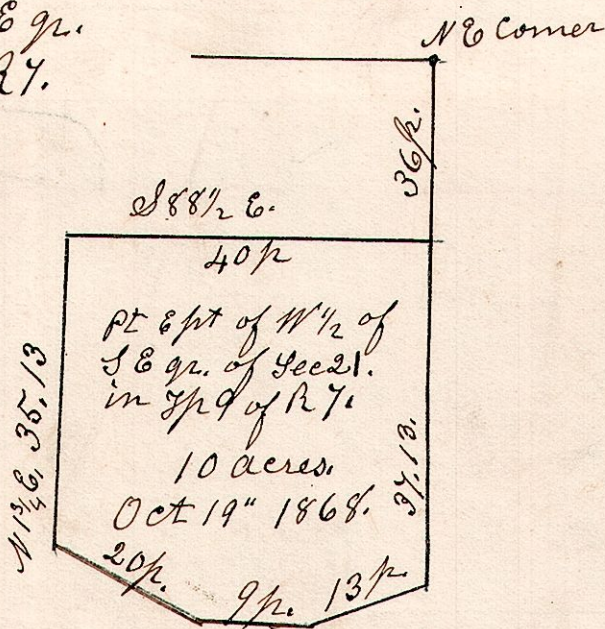 E qr.
R7.
NE Corner
36p.
S 88 1/2 E.
40p
pt E pt of W 1/2 of
S E qr. of Sec 21.
in Tp 9 of R 7.
10 acres.
Oct 19" 1868.
N 1 3/4 E, 35,13
37,13.
20p.
9p.
13p.